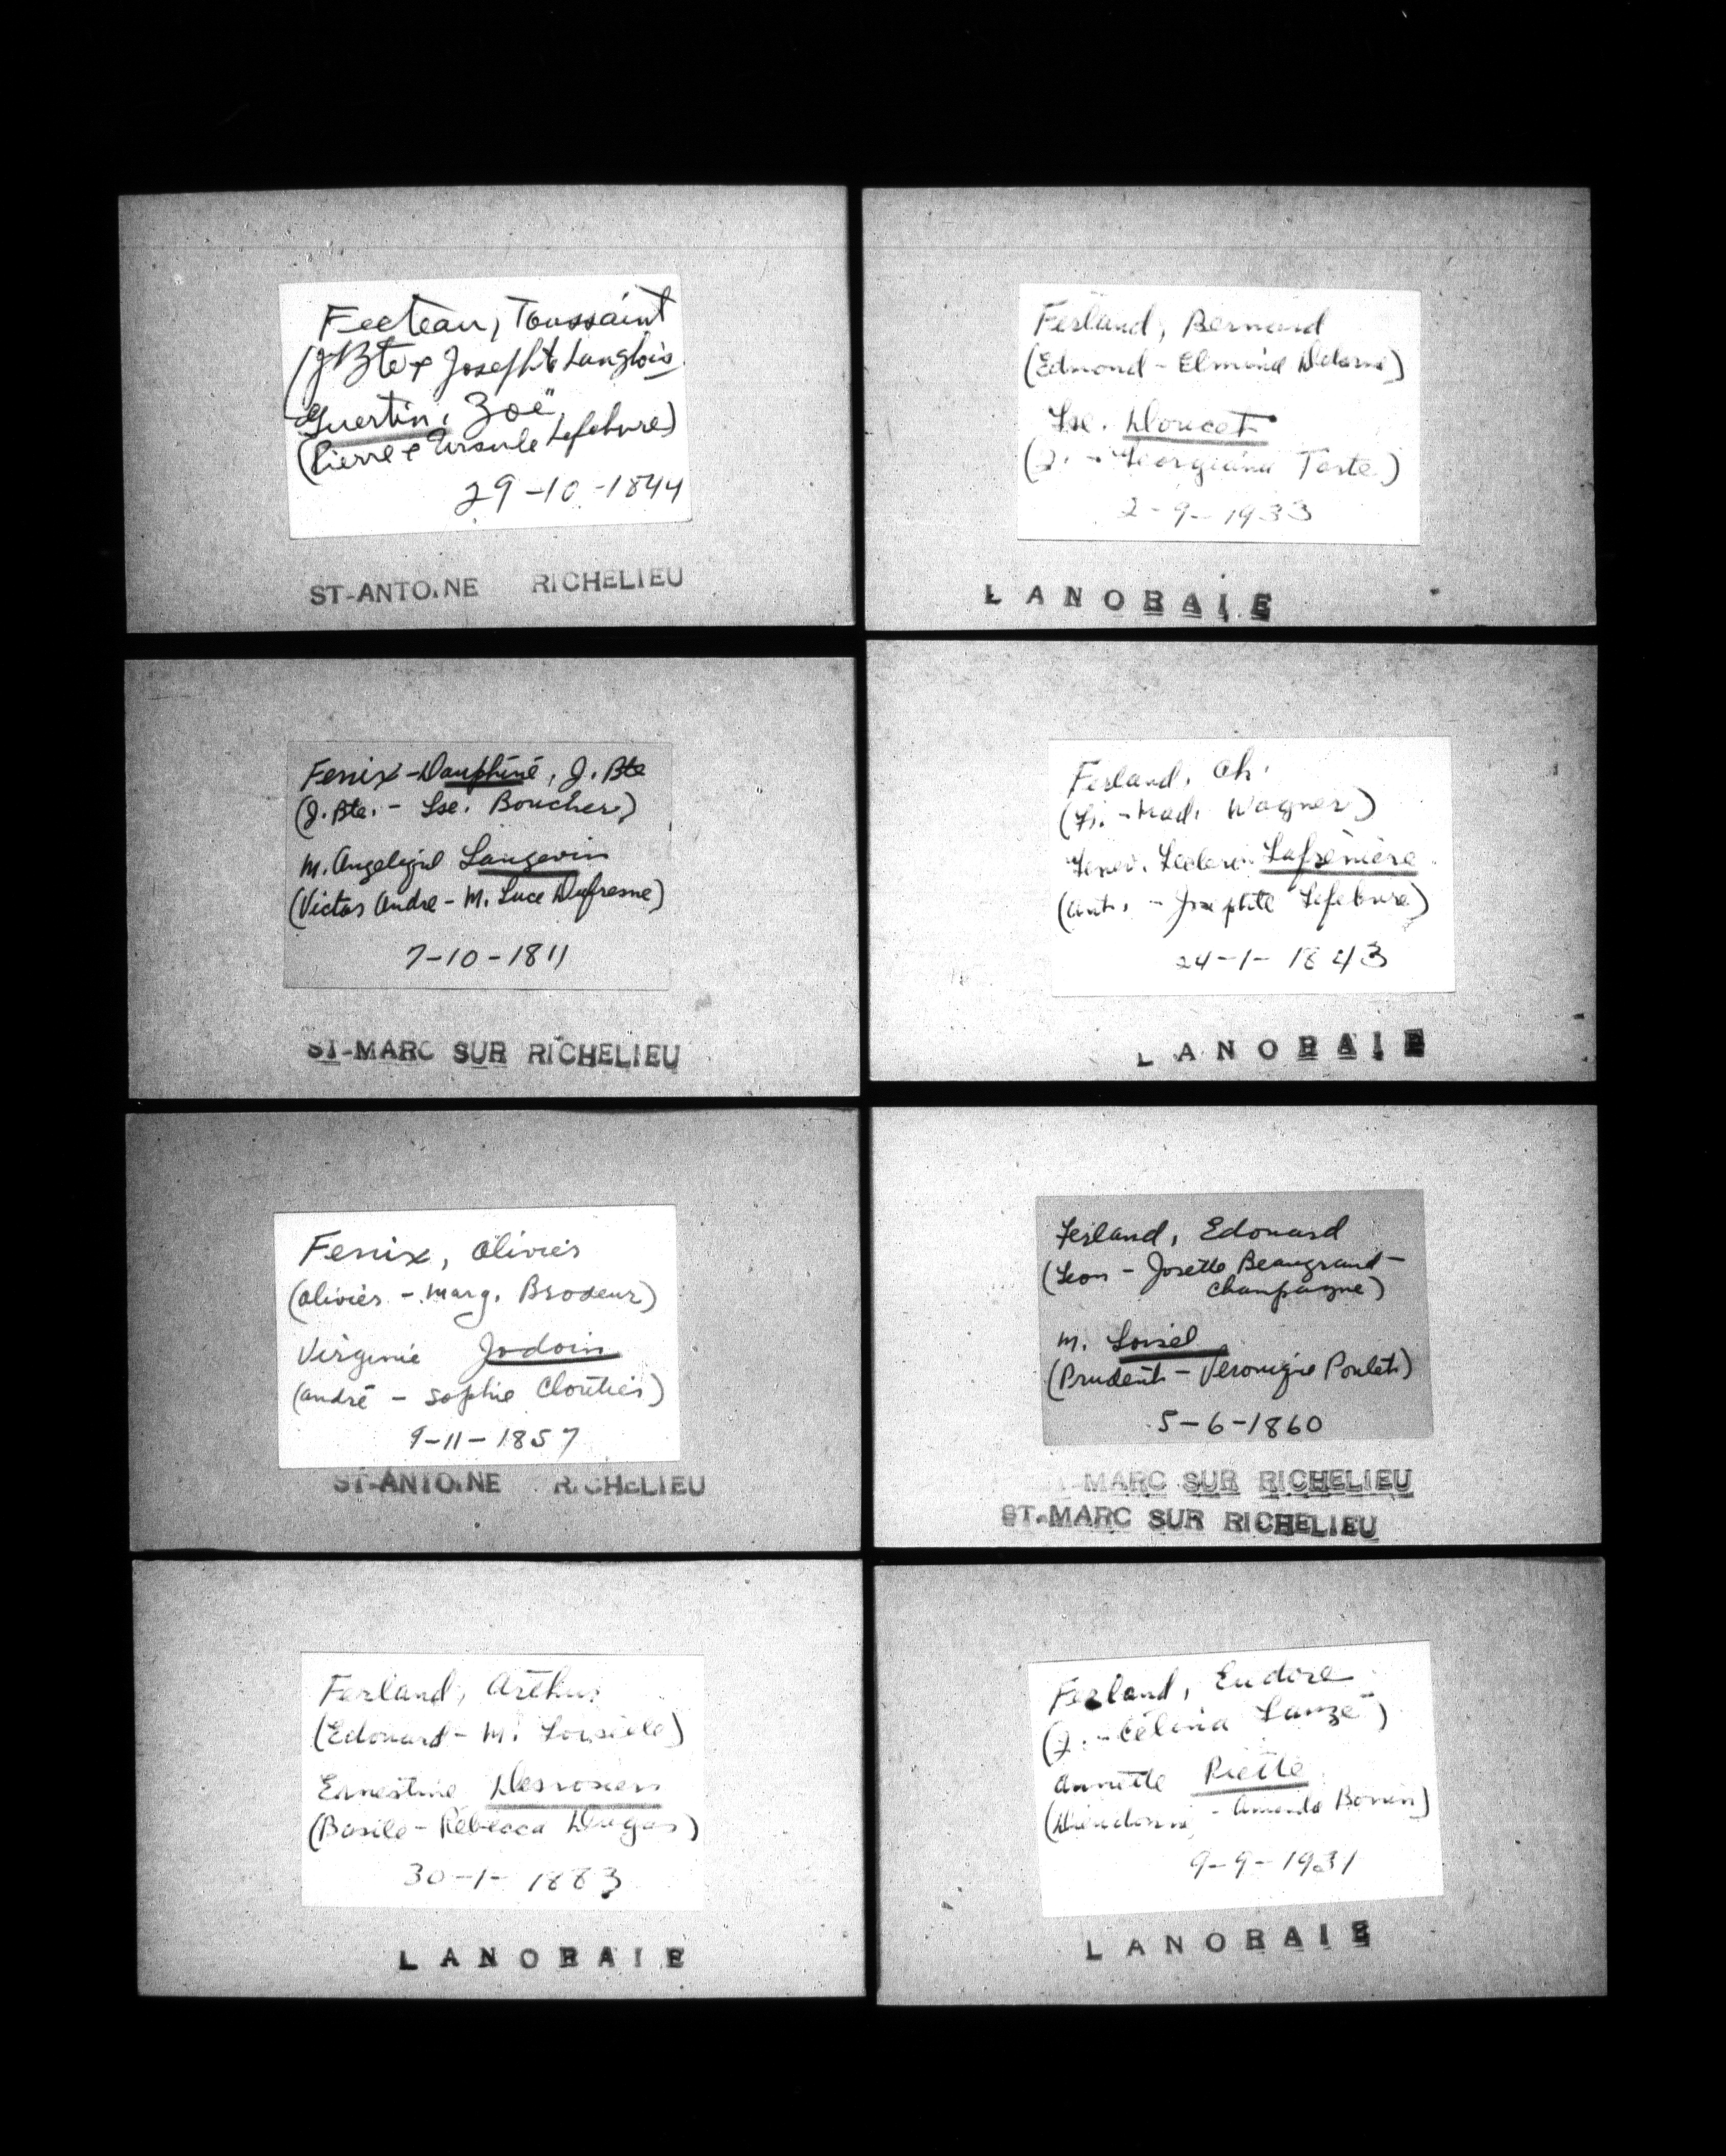 Fecteau, Toussaint
(J Bte & Josephte Langlois
Guertin, Zoë
(Pierre & Ursule Lefebvre)
29-10-1844
ST-ANTOINE RICHELIEU
Fenix-Dauphiné, J. Bte
(J. Bte. - Lse. Boucher)
M. Angeliqe Langevin
(Victor Andre - M. Luce Dufresne)
7-10-1811
ST-MARC SUR RICHELIEU
Fenix, Olivier
(Olivier - Marg. Brodeur)
Virginie Jodoin
(André - Sophie Cloutier)
9-11-1857
ST-ANTOINE RICHELIEU
Ferland, Arthur
(Edouard - M. Loiselle)
Ernestine Desrosiers
(Basile - Rébecca Dugas)
30-1-1883
LANORAIE
Ferland, Bernard
(Edmond - Elmina Delorme)
Lse. Doucet
(J. - Georgiana
2-9-1933
LANORAIE
Ferland, Ch.
(Fs. - Mad. Wagner)
Genev. Leclerc Lafrenière
(Ant. - Josephte Lefebvre)
24-1-1843
LANORAIE
Ferland, Edouard
(Leon - Josette Beaugrand-
Champagne)
M. Loisel
(Prudent - Veronique Poulet)
5-6-1860
MARC SUR RICHELIEU
ST-MARC SUR RICHELIEU
Ferland, Eudore
(J. - Célina
Annette Piette
(Dieudonné - Amanda Bonin)
9-9-1931
LANORAIE